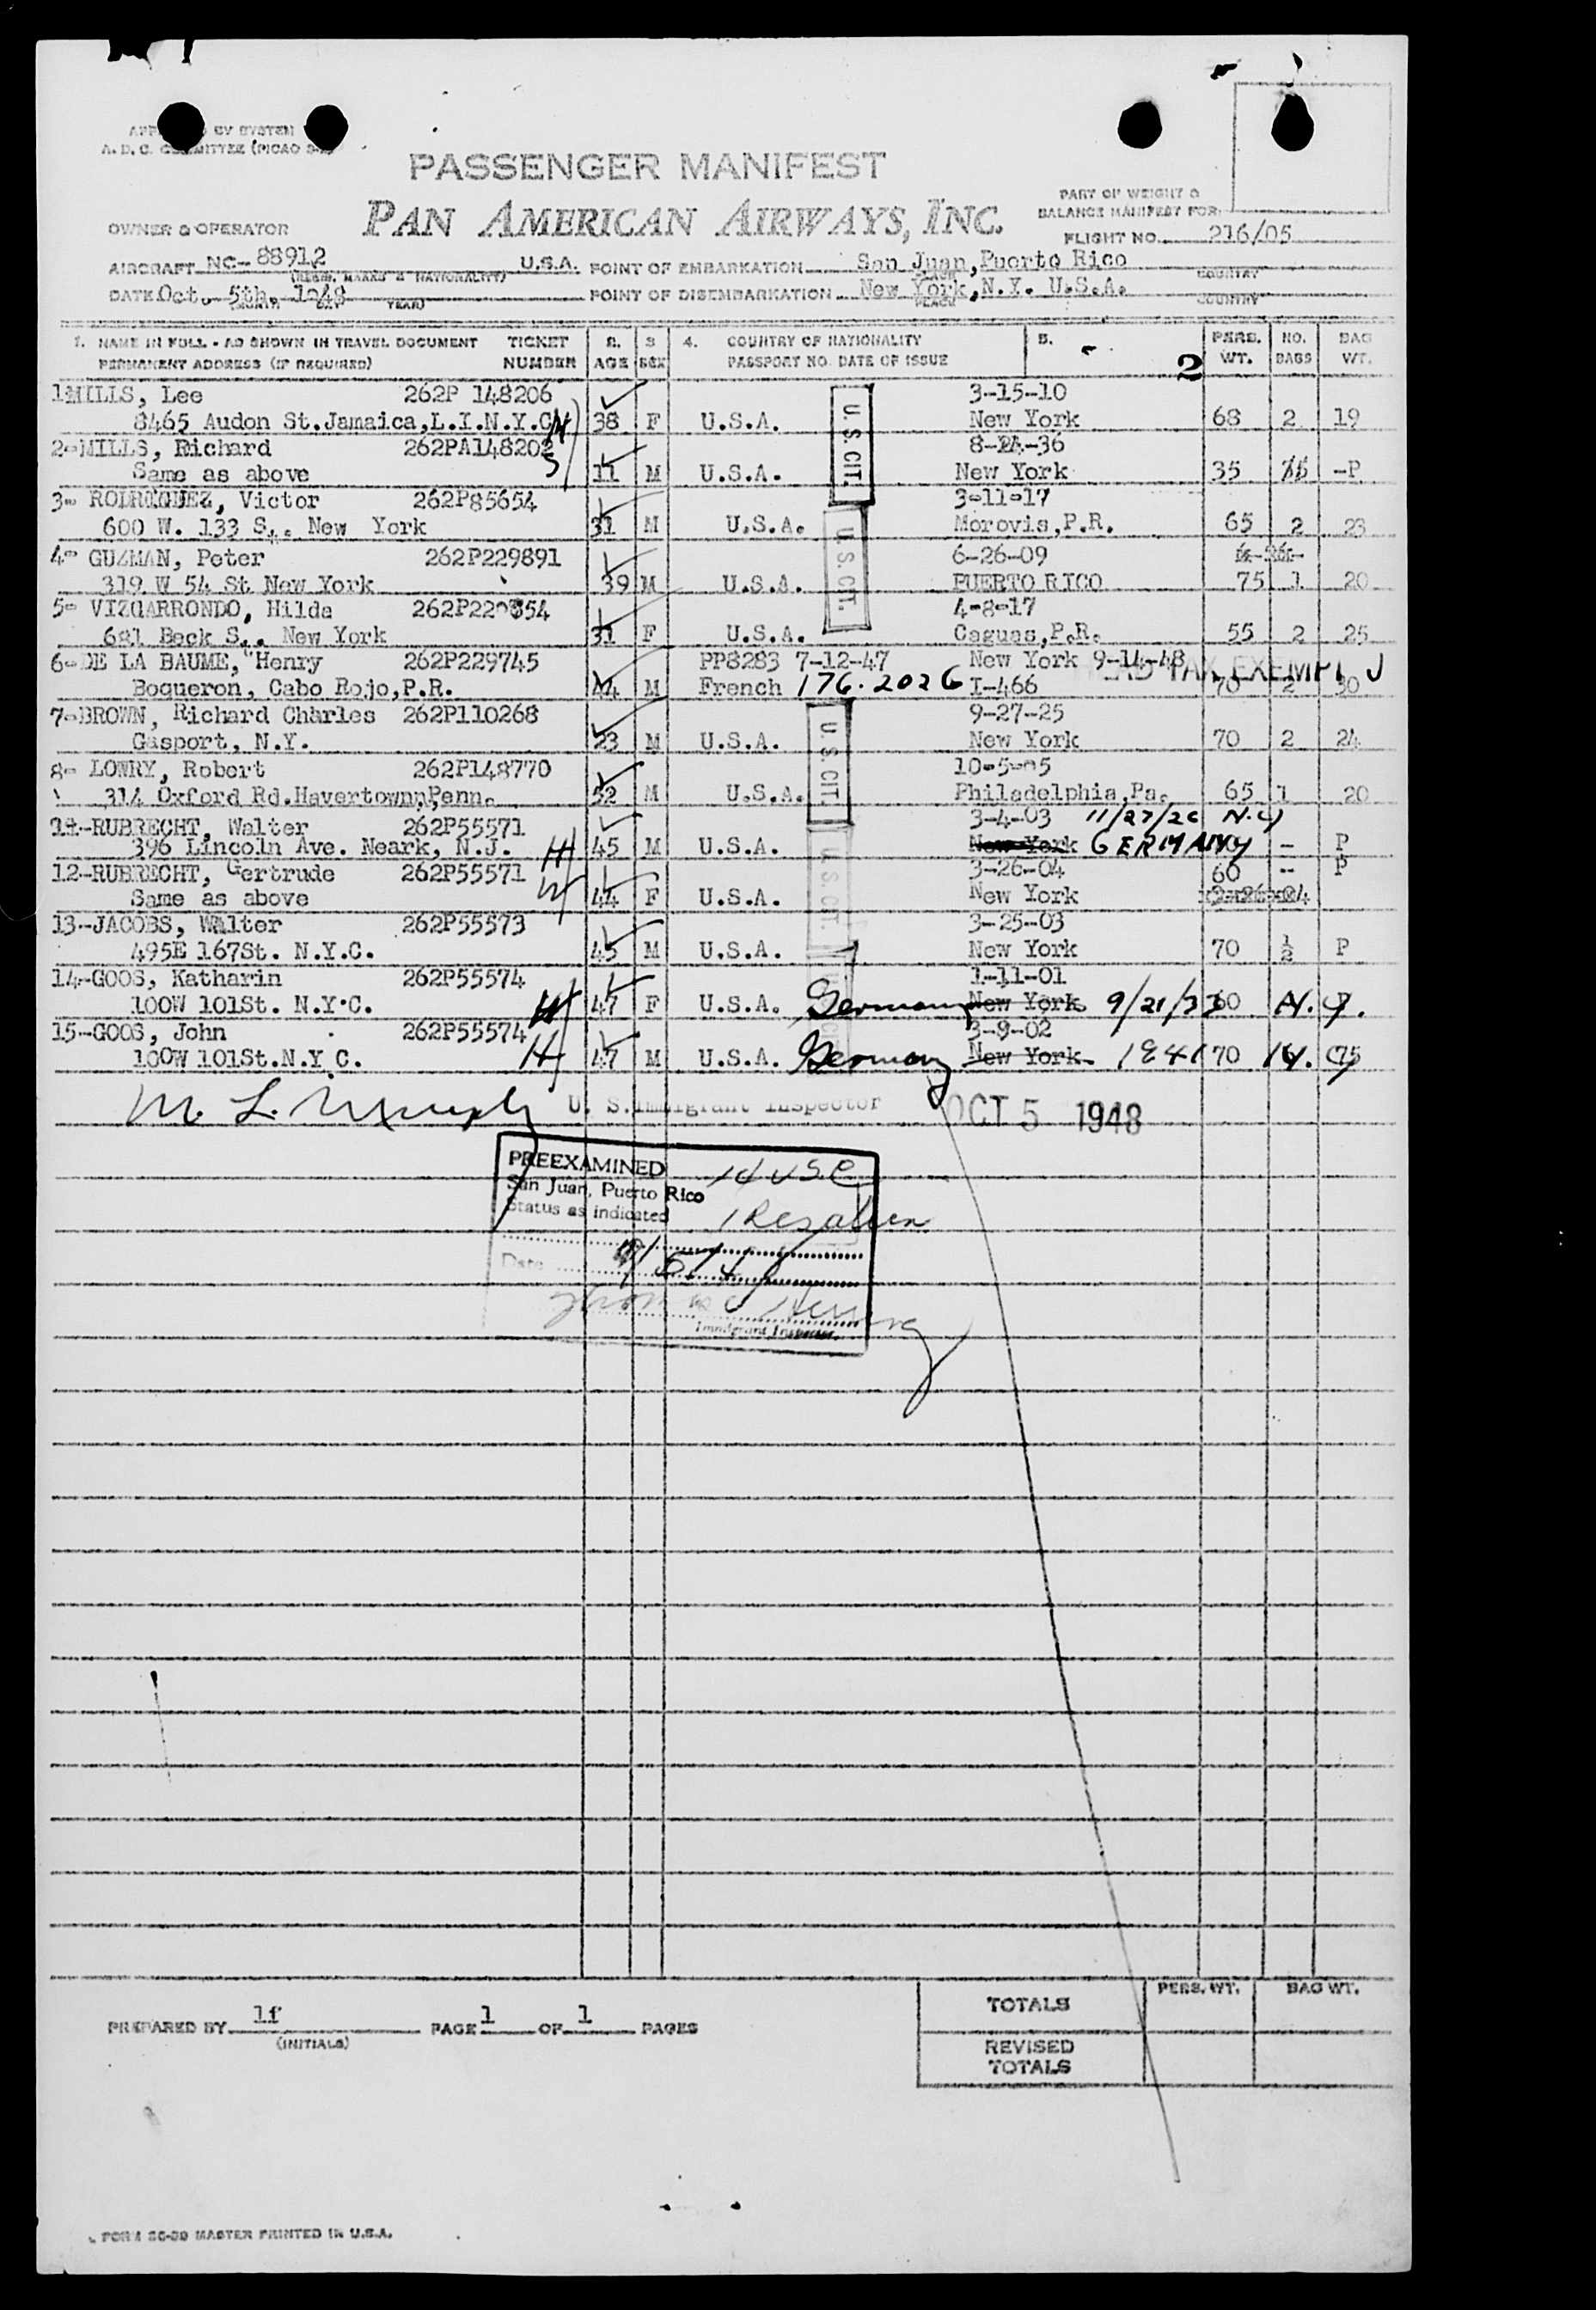 PASSENGER MANIFEST
PAN AMERICAN AIRWAYS, INC.
PART OF WEIGHT &
BALANCE MANIFEST FOR
OWNER & OPERATOR
FLIGHT NO. 216/05
AIRCRAFT NC-88912 U.S.A. POINT OF EMBARKATION San Juan, Puerto Rico
(REGIS. MARKS & NATIONALITY) PLACE COUNTRY
DATE Oct. 5th. 1948 POINT OF DISEMBARKATION New York, N.Y. U.S.A.
(MONTH DAY YEAR) PLACE COUNTRY
1. NAME IN FULL - AS SHOWN IN TRAVEL DOCUMENT TICKET 2. 3 4. COUNTRY OF NATIONALITY 5. PERS. NO. BAG
PERMANENT ADDRESS (IF REQUIRED) NUMBER AGE SEX PASSPORT NO. DATE OF ISSUE 2 WT. BAGS WT.
1-MILLS, Lee 262P 148206 3-15-10
8465 Audon St.Jamaica,L.I.N.Y.C. 38 F U.S.A. New York 68 2 19
2-MILLS, Richard 262PA148202 8-21-36
Same as above 11 M U.S.A. New York 35 -P
3- RODRIQUEZ, Victor 262P85654 3-11-17
600 W. 133 S.. New York 31 M U.S.A. Morovis,P.R. 65 2 23
4- GUZMAN, Peter 262P229891 6-26-09
319 W 54 St New York 39 M U.S.A. PUERTO RICO 75 1 20
5- VIZQARRONDO, Hilda 262P229854 4-8-17
681 Beck S.. New York 31 F U.S.A. Caguas,P.R. 55 2 25
6-DE LA BAUME, Henry 262P229745 PP8283 7-12-47 New York 9-14-48 HEAD TAX EXEMPT J
Boqueron, Cabo Rojo,P.R. 44 M French 176.2026 I-466 70 2 30
7-BROWN, Richard Charles 262P110268 9-27-25
Gasport, N.Y. 23 M U.S.A. New York 70 2 24
8- LOWRY, Robert 262P148770 10-5-05
314 Oxford Rd.Havertown,Penn. 52 M U.S.A. Philadelphia,Pa. 65 1 20
11-RUBRECHT, Walter 262P55571 3-4-03 11/27/26 N.Y
396 Lincoln Ave. Neark, N.J. H 45 M U.S.A. New York GERMANY - P
12-RUBRECHT, Gertrude 262P55571 3-26-04 60 -- P
Same as above W 44 F U.S.A. New York
13-JACOBS, Walter 262P55573 3-25-03
495E 167St. N.Y.C. 45 M U.S.A. New York 70 1/2 P
14-GOOS, Katharin 262P55574 1-11-01
100W 101St. N.Y.C. W 47 F U.S.A. Germany New York 9/21/33 60 N.Y.
15-GOOS, John 262P55574 3-9-02
100W 101St.N.Y C. H 47 M U.S.A. Germany New York 1941 70 N.Y
U.S. CIT.
U.S. CIT.
U.S. CIT.
U.S. CIT.
U. S. Immigrant Inspector OCT 5 1948
PREEXAMINED 14 USC
San Juan, Puerto Rico
Status as indicated 1 Res alien
Date
Immigrant Inspector
TOTALS PERS. WT. BAG WT.
PREPARED BY lf PAGE 1 OF 1 PAGES
(INITIALS)
REVISED
TOTALS
FORM 30-39 MASTER PRINTED IN U.S.A.